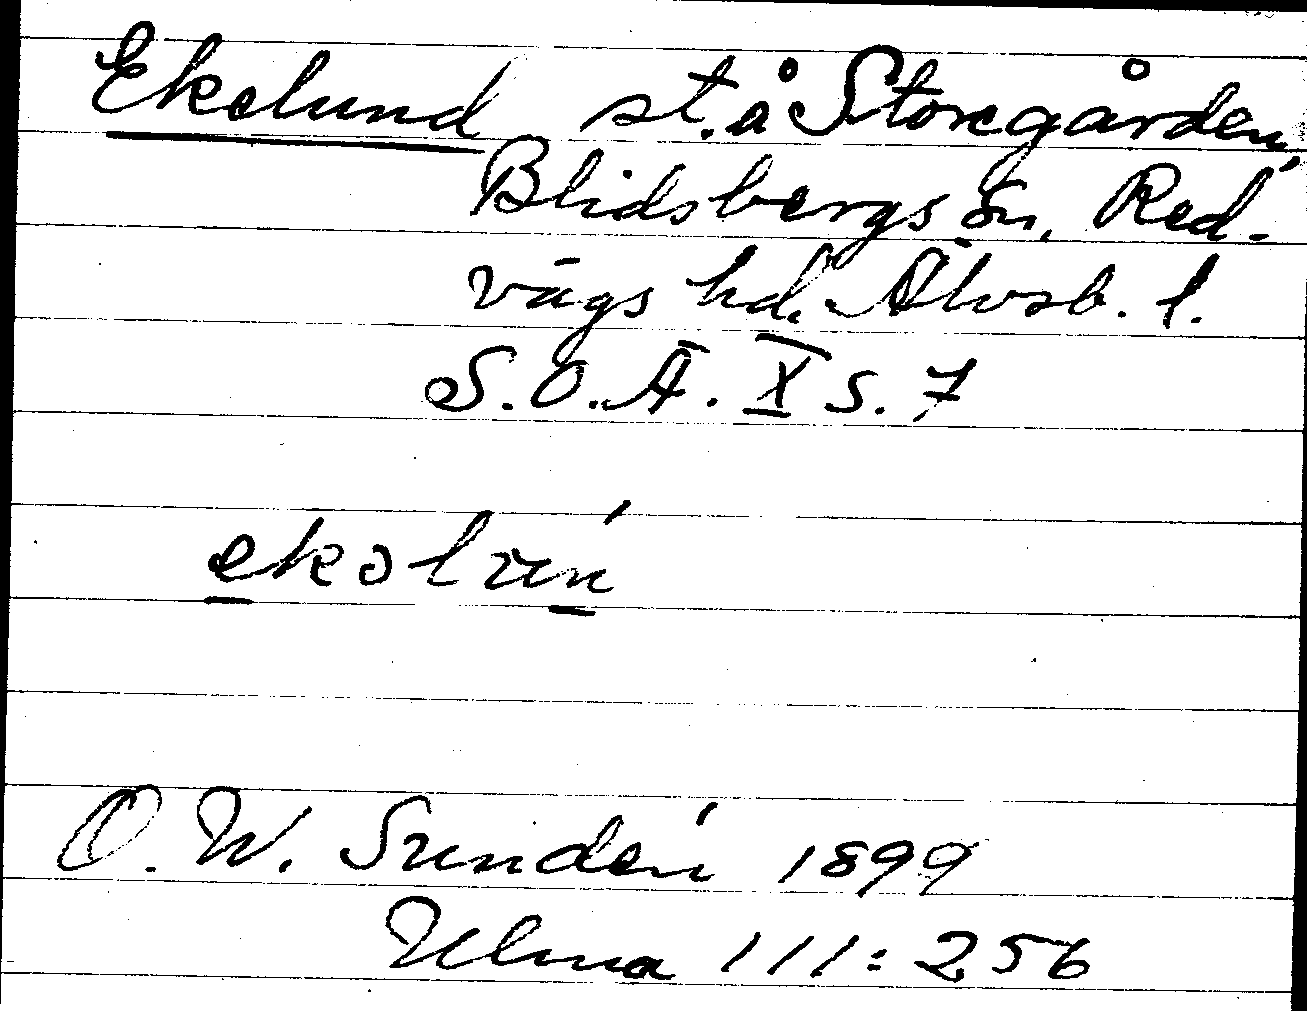 Ekelund st. å Storegården,
Blidsbergs sn, Red-
vägs hd. Älvsb. l.
S.O.Ä. X s. 7
ekolún
O. W. Sundén 1899
Ulma 111:256